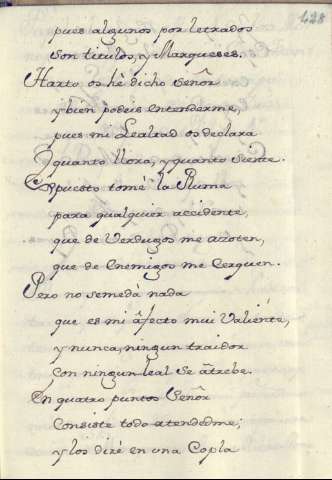 428
pues algunos por letrados
son titulos, y Marqueses.
Harto os hè dicho Señor
y bien podeis entenderme,
pues mi Lealtad os declara
quanto llora, y quanto siente.
Espuesto tomè la Pluma
para qualquier accidente,
que de Verdugos me azoten,
que de Enemigos me Cerquen.
Pero no semedà nada
que es mi afecto mui Valiente,
y nunca, ningun traidor
con ningun leal se atrebe.
En quatro puntos Señor
Consiste todo atendedme;
y los diré en una Copla